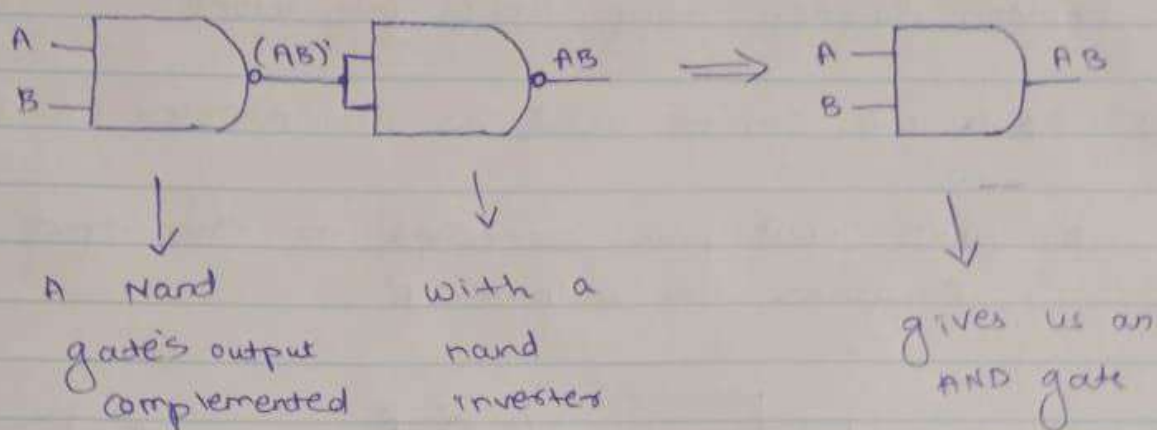 A
B
(AB)'
AB
A
B
AB
A Nand
gate's output
complemented
with a
nand
inverter
gives us an
AND gate